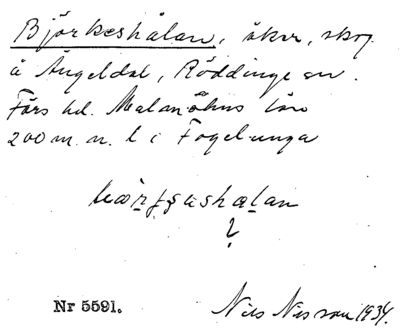 Björkeshålan, åker, skog
å Ängeldal, Röddinge sn.
Färs hd. Malmöhus län
200 m. n. t i Fogelunga
Nr 5591.
Nils Nilsson 1934.